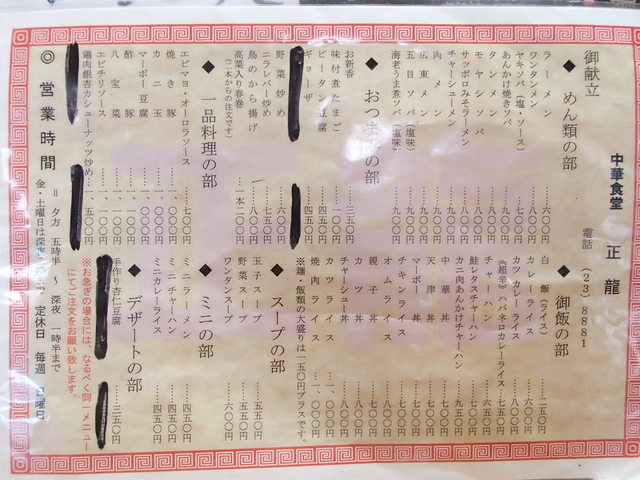 中華食堂　正龍
電話（23）8881
御献立
◆めん類の部
ラーメン……六〇〇円
ワンタンメン……八〇〇円
ヤキソバ（塩・ソース）
あんかけ焼きソバ
タンメン……八〇〇円
モヤシソバ
サッポロみそラーメン
チャーシューメン
肉メン……九〇〇円
広東メン……九〇〇円
五目ソバ（塩味）……九〇〇円
海老うま煮ソバ（塩味）……九〇〇円
◆おつまみの部
お新香……三五〇円
味付煮たまご
ピータン豆腐……四五〇円
ギョーザ……四五〇円
野菜炒め……六〇〇円
ニラレバー炒め……七五〇円
鳥のから揚げ……八〇〇円
高菜入り春巻……一本二〇〇円
（二本からの注文です）
◆一品料理の部
エビマヨ・オーロラソース
焼き豚
カニ玉……一、〇〇〇円
マーボー豆腐……一、〇〇〇円
酢豚
八宝菜
エビチリソース
鶏肉銀杏カシューナッツ炒め…一、五〇〇円
◆御飯の部
白飯（ライス）……二五〇円
カレーライス
カツカレーライス
《超辛》ハバネロカレーライス…七五〇円
チャーハン……六五〇円
鮭レタスチャーハン
カニ肉あんかけチャーハン…九五〇円
中華丼
天津丼
マーボー丼
チキンライス
オムライス
親子丼
カツ丼
チャーシュー丼
カツライス……一、〇〇〇円
焼肉ライス……一、〇〇〇円
※麺・飯類の大盛りは一五〇円プラスです。
◆スープの部
玉子スープ……五五〇円
野菜スープ……五五〇円
ワンタンスープ……六〇〇円
◆ミニの部
ミニラーメン……四五〇円
ミニチャーハン……四五〇円
ミニカレーライス……四五〇円
◆デザートの部
手作り杏仁豆腐……三五〇円
※お急ぎの場合には、なるべく同一メニュー
にてご注文をお願い致します。
◎営業時間＝夕方　五時半～深夜　一時半まで
金・土曜日は深夜　定休日　毎週　日曜日